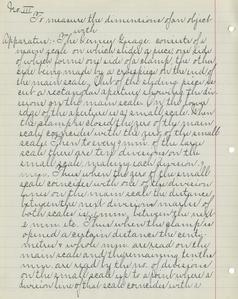 No. III
To measure the dimensions of an object
with
Apparatus:- The Vernier Guage consists of a
main scale on which slides a piece, one side
of which forms one side of a clamp the other
side being made by a crosspiece on the end of
the main scale. Out of the sliding piece is
cut a rectangular aperture showing the div-
isions on the main scale. On the lower
edge of this aperture is a small scale. When
the clamp is closed the zero of the main
scale coincides with the zero of the small
scale. Then to every 9 mm. of the large
scale there are ten divisions on the
small scale, making each division
mm. Thus when the zero of the small
scale coincides with one of the division
lines on the main scale the distance
between the next division marks of
both scales is .1 mm, between the next
.2 mm etc. Thus when the clamp is
opened a certain distance the centi-
metres & whole mm are read on the
main scale and the remaining tenths
mm. are read by the no. of divisions
on the small scale up to a point where a
division line of that scale coincides with a